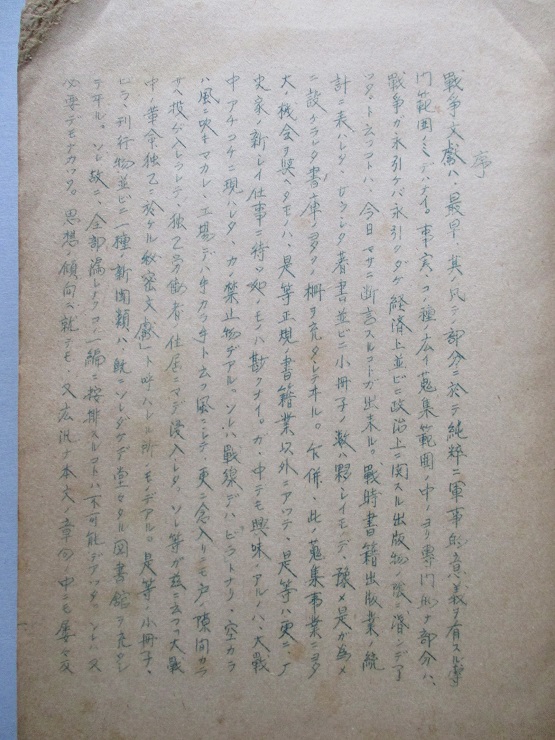 序
戰爭文獻ハ、最早、其ノ凡テノ部分ニ於テ純粹ニ軍事的意義ヲ有スル專
門範囲ノミデナイ事実、コノ種ノ広イ蒐集範囲ノ中ノヨリ専門的ナ部分ハ、
戰爭ガ永引ケバ永引クダケ経済上並ビニ政治上ニ関スル出版物ノ
ト云フコトハ、今日マサニ断言スルコトガ出来ル。戰時書籍出版業ノ統
計ニ表ハレタ著書並ビニ小冊子ノ数ハ夥シイモノデ、是ガ為メ
ニ設ケラレタ書庫ノ多クノ棚ヲ充タシテオル。併、此ノ蒐集事業ニヨリ大
機会ヲ與ヘタモノハ、是等正規ノ書籍業以外ニアッテ、是等ハ更ニ
史家ノ新シイ仕事ニ待ツ如キモノハ尠クナイ。ガ、中デモ興味ノアルノハ、大戰
中アチコチニ現ハレタ、カノ禁止物デアル。ソレハ戰線デハビラトナリ、空カラ
ハ風ニ吹キマカレ、工場デハ手カラ手ト云フ風ニシテ、更ニ念入リニモ戸ノ隙間カラ
サヘ投ゲ入レラレテ、独乙労働者ノ住居ニマデ浸入シタ。ソレ等ガ茲ニ云フ大戰
中ノ革命独乙ニ於ケル秘密文獻」ト呼バレル所ノモノデアル。是等ノ小冊子、
ビラ、刊行物並ビニ一種ノ新聞類ハ、既ニソレダケデ堂々タル図書館ヲ充タシ
テオル。ソレ故ニ、全部漏レナクコノ一編ニ按排スルコトハ不可能デアッタ。ソレハ又
必要デモナカッタ。思想ノ傾向ニ就テモ、又広汎ナ本文ノ章句ノ中ニモ屡々反